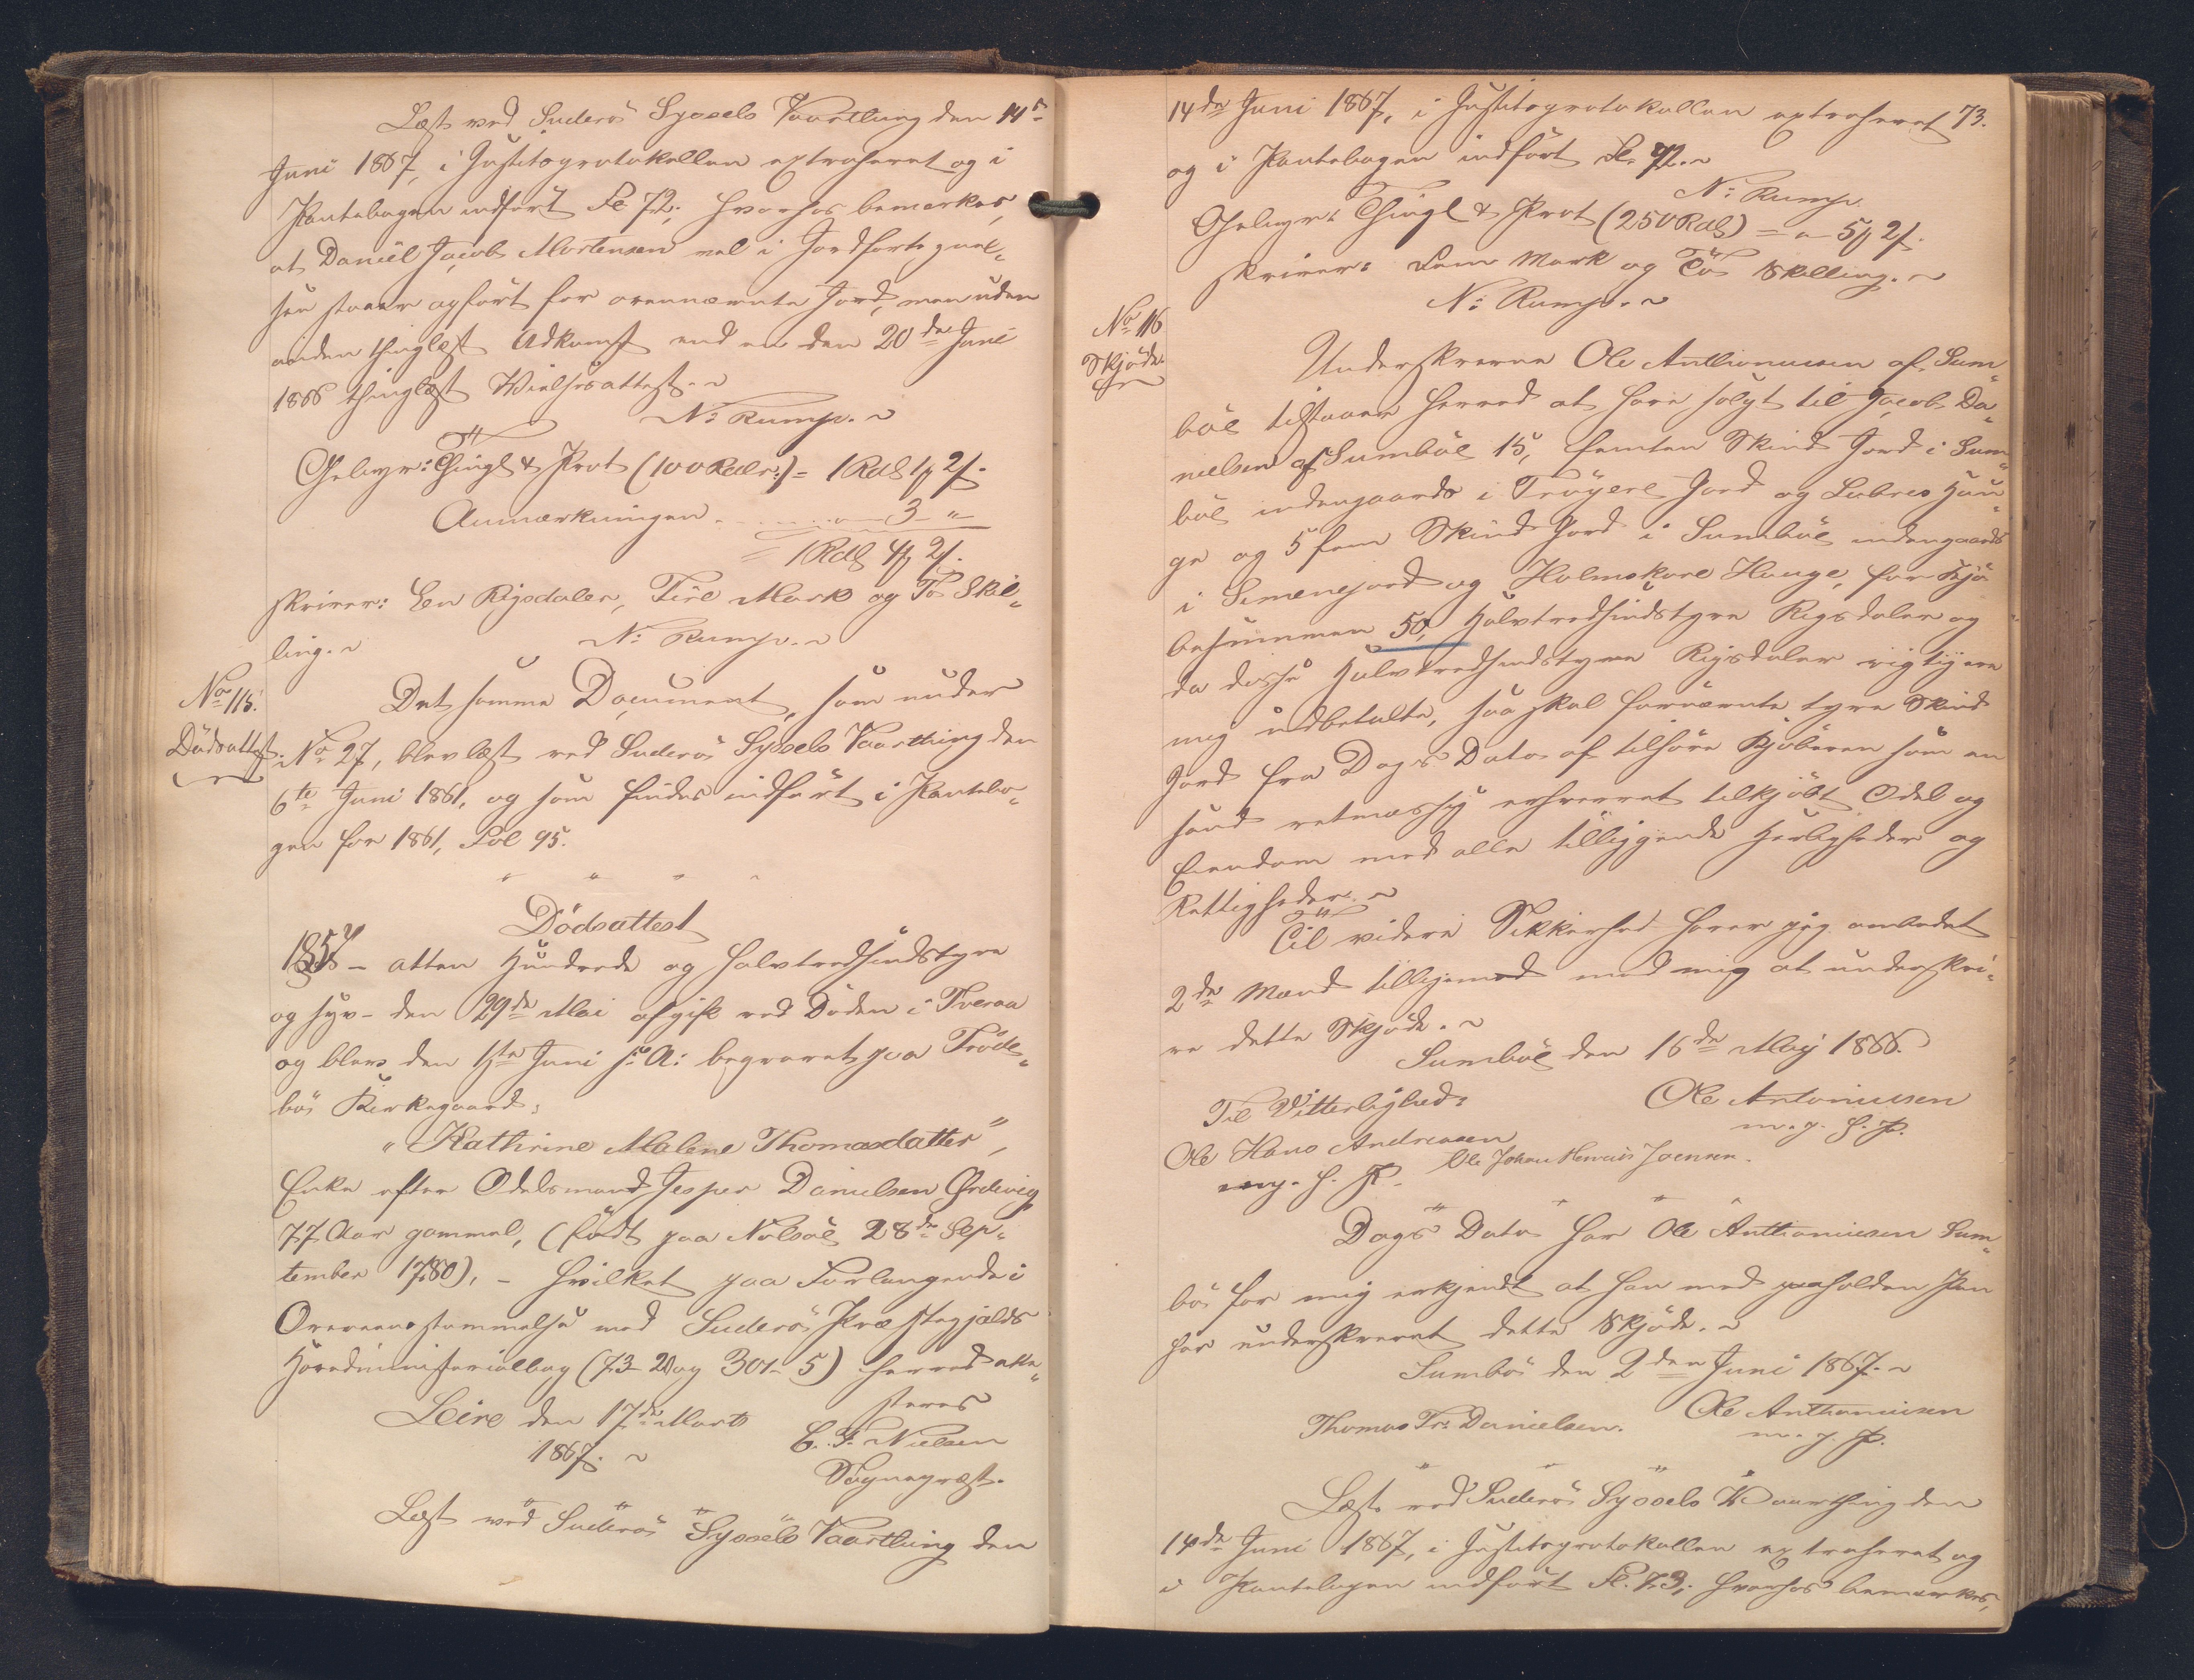 Læst ved Suderö Syssels Vaarthing den 14de
Juni 1867, i Justitsprotokollen extraheret og i
Pantebogen indfört Fo 72, hvorhos bemærkes,
at Daniel Jacob Mortensen vel i Jordfortegnel-
sen staaer opfört for ovennævnte Jord, men uden
anden thinglæst Adkomst end en den 20de Juni
1866 thinglæst Vielsesattest.
N: Rump.
Gebyr: Thingl & Prot (100 Rdlr.) = 1 Rdl 1 ₻ 2 ß.
Anmærkningen . . . . . . 3 "
= 1 Rdl 4 ₻ 2 ß.
skriver: Een Rigsdaler, Fire Mark og To Skil-
ling.
N: Rump.
No 115.
Dödsattest.
Det samme Document, som under
No 27, blev læst ved Suderö Syssels Vaarthing den
6te Juni 1861, og som findes indfört i Pantebo-
gen for 1861, Fol 95.
Dödsattest
1857 - atten Hundrede og halvtredsindstyve
og syv - den 29de Mai afgik ved Döden i Tveraa
og blev den 1ste Juni s: A: begravet paa Fröd-
bö Kirkegaard:
"Kathrine Malene Thomasdatter",
Enke efter Odelsmand Jesper Danielsen Ördevig
77 Aar gammel, (födt paa Nolsöe 28de Sep-
tember 1780), - hvilket paa Forlangende i
Overeensstemmelse med Suderö Præstegjelds
Hovedministerialbog (73 Dvg 301-5) herved atte-
steres
Leire den 17de Marts
1867.
C. F. Nielsen
Sognepræst.
Læst ved Suderö Syssels Vaarthing den
73.
14de Juni 1867, i Justitsprotokollen extraheret
og i Pantebogen indfört Fo. 72.
N: Rump.
Gebyr: Thingl & Prot (250 Rdl) = " 5 ₻ 2 ß.
skriver: Fem Mark og To Skilling.
N: Rump.
No 116
Skjöde.
Underskrevne Ole Anthoniusen af Sum-
böe tilstaaer herved at have solgt til Jacob Da-
nielsen af Sumböe 15, femten Skind Jord i Sum-
böe indengaards i Tröyere Jord og Lubres Hau-
ge og 5 fem Skind Jord i Sumböe indengaards
i Simenejord og Holmskore Hauge, for Kjö-
besummen 50, Halvtredsindstyve Rigsdaler og
da disse Halvtredsindstyve Rigsdaler rigtig ere
mig udbetalte, saa skal fornævnte tyve Skind
Jord fra Dags Dato af tilhöre Kjöberen som en
sand retmæssig erhvervet tilkjöbt Odel og
Eiendom med alle tilliggende Herligheder og
Rettigheder.
Til videre Sikkerhed haver jeg ombedet
2de Mænd tilligemed med mig at underskri-
ve dette Skjöde.
Sumböe den 16de Maj 1866.
Til Vitterlighed:
Ole Antoniusen
m. f. P.
Ole Hans Andreasen
m. f. P.
Ole Johan Henrich Joensen.
Dags Dato har Ole Anthoniusen Sum-
bö for mig erkjendt at han med paaholden Pen
har underskrevet dette Skjöde.
Sumbö den 2den Juni 1867.
Thomas Fr: Danielsen.
Ole Anthoniusen
m. f. P.
Læst ved Suderö Syssels Vaarthing den
14de Juni 1867, i Justitsprotokollen extraheret og
i Pantebogen indfört Fo. 73; hvorhos bemærkes,